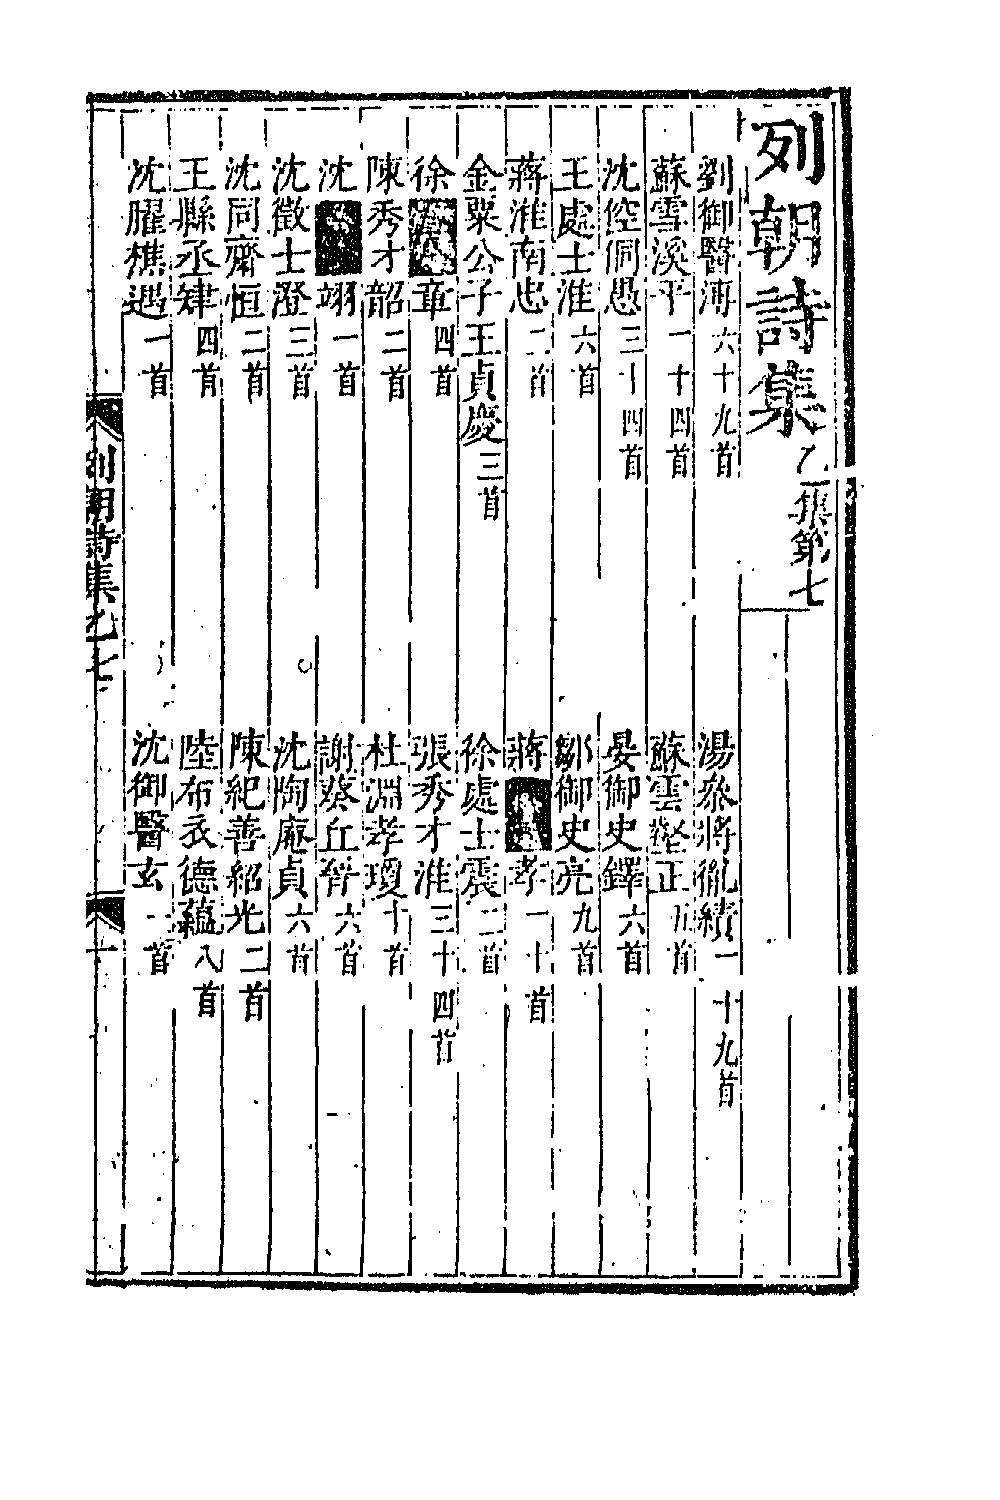 列朝詩集乙集第七
劉御醫溥六十九首 湯參將胤績一十九首
蘇雪溪平一十四首 蘇雲壑正五首
沈倥侗愚三十四首 晏御史鐸六首
王處士淮六首 鄒御史亮九首
蔣淮南忠二首 蔣孝一十首
金粟公子王貞慶三首 徐處士震二首
徐章四首 張秀才淮三十四首
陳秀才韶二首 杜淵孝瓊十首
沈翊一首 謝葵丘晉六首
沈徵士澄三首 沈陶庵貞六首
沈同齋恒二首 陳紀善紹光二首
王縣丞肄四首 陸布衣德蘊八首
沈臞樵遇一首 沈御醫玄首
列朝詩集乙七
一